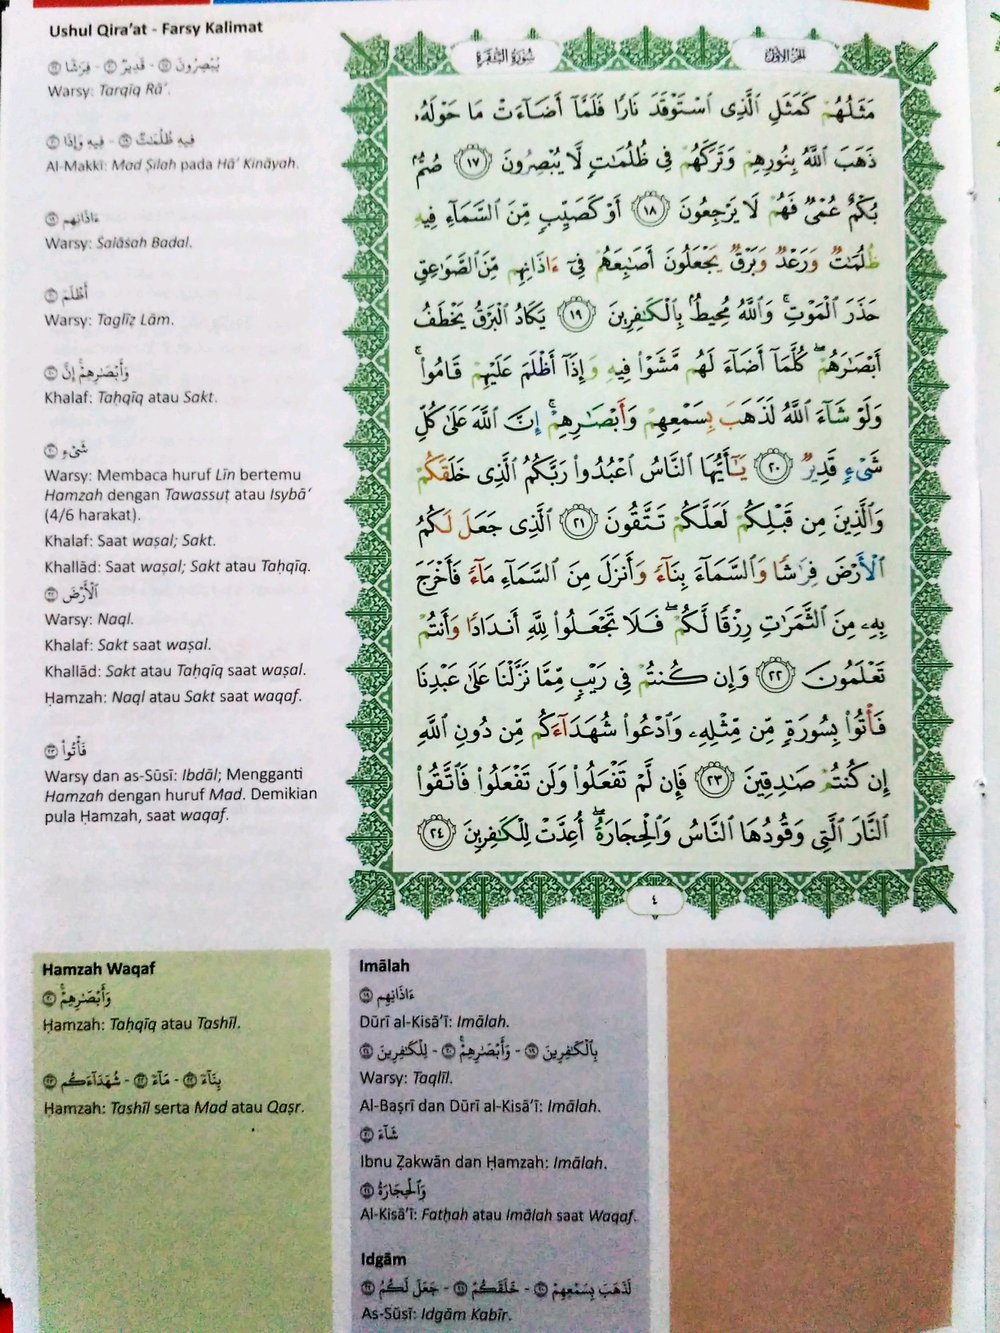 Ushul Qira'at - Farsy Kalimat
يُبْصِرُونَ ١٧ - قَدِيرٌ ٢٠ - فِرَٰشًا ٢٢
Warsy: Tarqiq Rā'.
فِيهِ ظُلُمَٰتٌ ١٩ - فِيهِ وَإِذَا ٢٠
Al-Makki: Mad Ṣilah pada Hā' Kināyah.
ءَاذَانِهِم ١٩
Warsy: Ṡalāṡah Badal.
أَظْلَمَ ٢٠
Warsy: Taglīẓ Lām.
وَأَبْصَٰرِهِمْۚ إِنَّ ٢٠
Khalaf: Taḥqīq atau Sakt.
شَىْءٍ ٢٠
Warsy: Membaca huruf Līn bertemu
Hamzah dengan Tawassuṭ atau Isybā'
(4/6 harakat).
Khalaf: Saat waṣal; Sakt.
Khallād: Saat waṣal; Sakt atau Taḥqīq.
ٱلْأَرْضَ ٢٢
Warsy: Naql.
Khalaf: Sakt saat waṣal.
Khallād: Sakt atau Taḥqīq saat waṣal.
Ḥamzah: Naql atau Sakt saat waqaf.
فَأْتُوا۟ ٢٣
Warsy dan as-Sūsī: Ibdāl; Mengganti
Hamzah dengan huruf Mad. Demikian
pula Ḥamzah, saat waqaf.
الجزء الأول
سُورَةُ البَقَرَة
مَثَلُهُمْ كَمَثَلِ ٱلَّذِى ٱسْتَوْقَدَ نَارًا فَلَمَّآ أَضَآءَتْ مَا حَوْلَهُۥ
ذَهَبَ ٱللَّهُ بِنُورِهِمْ وَتَرَكَهُمْ فِى ظُلُمَٰتٍ لَّا يُبْصِرُونَ ١٧ صُمٌّۢ
بُكْمٌ عُمْىٌ فَهُمْ لَا يَرْجِعُونَ ١٨ أَوْ كَصَيِّبٍ مِّنَ ٱلسَّمَآءِ فِيهِ
ظُلُمَٰتٌ وَرَعْدٌ وَبَرْقٌ يَجْعَلُونَ أَصَٰبِعَهُمْ فِىٓ ءَاذَانِهِم مِّنَ ٱلصَّوَٰعِقِ
حَذَرَ ٱلْمَوْتِۚ وَٱللَّهُ مُحِيطٌۢ بِٱلْكَٰفِرِينَ ١٩ يَكَادُ ٱلْبَرْقُ يَخْطَفُ
أَبْصَٰرَهُمْۖ كُلَّمَآ أَضَآءَ لَهُم مَّشَوْا۟ فِيهِ وَإِذَآ أَظْلَمَ عَلَيْهِمْ قَامُوا۟ۚ
وَلَوْ شَآءَ ٱللَّهُ لَذَهَبَ بِسَمْعِهِمْ وَأَبْصَٰرِهِمْۚ إِنَّ ٱللَّهَ عَلَىٰ كُلِّ
شَىْءٍ قَدِيرٌ ٢٠ يَٰٓأَيُّهَا ٱلنَّاسُ ٱعْبُدُوا۟ رَبَّكُمُ ٱلَّذِى خَلَقَكُمْ
وَٱلَّذِينَ مِن قَبْلِكُمْ لَعَلَّكُمْ تَتَّقُونَ ٢١ ٱلَّذِى جَعَلَ لَكُمُ
ٱلْأَرْضَ فِرَٰشًا وَٱلسَّمَآءَ بِنَآءً وَأَنزَلَ مِنَ ٱلسَّمَآءِ مَآءً فَأَخْرَجَ
بِهِۦ مِنَ ٱلثَّمَرَٰتِ رِزْقًا لَّكُمْۖ فَلَا تَجْعَلُوا۟ لِلَّهِ أَندَادًا وَأَنتُمْ
تَعْلَمُونَ ٢٢ وَإِن كُنتُمْ فِى رَيْبٍ مِّمَّا نَزَّلْنَا عَلَىٰ عَبْدِنَا
فَأْتُوا۟ بِسُورَةٍ مِّن مِّثْلِهِۦ وَٱدْعُوا۟ شُهَدَآءَكُم مِّن دُونِ ٱللَّهِ
إِن كُنتُمْ صَٰدِقِينَ ٢٣ فَإِن لَّمْ تَفْعَلُوا۟ وَلَن تَفْعَلُوا۟ فَٱتَّقُوا۟
ٱلنَّارَ ٱلَّتِى وَقُودُهَا ٱلنَّاسُ وَٱلْحِجَارَةُۖ أُعِدَّتْ لِلْكَٰفِرِينَ ٢٤
٤
Hamzah Waqaf
وَأَبْصَٰرِهِمْۚ ٢٠
Ḥamzah: Taḥqīq atau Tashīl.
بِنَآءً ٢٢ - مَآءً ٢٢ - شُهَدَآءَكُم ٢٣
Ḥamzah: Tashīl serta Mad atau Qaṣr.
Imālah
ءَاذَانِهِم ١٩
Dūrī al-Kisā'ī: Imālah.
بِٱلْكَٰفِرِينَ ١٩ - وَأَبْصَٰرِهِمْۚ ٢٠ - لِلْكَٰفِرِينَ ٢٤
Warsy: Taqlīl.
Al-Baṣrī dan Dūrī al-Kisā'ī: Imālah.
شَآءَ ٢٠
Ibnu Żakwān dan Ḥamzah: Imālah.
وَٱلْحِجَارَةُ ٢٤
Al-Kisā'ī: Fatḥah atau Imālah saat Waqaf.
Idgām
لَذَهَبَ بِسَمْعِهِمْ ٢٠ - خَلَقَكُمْ ٢١ - جَعَلَ لَكُمُ ٢٢
As-Sūsī: Idgām Kabīr.